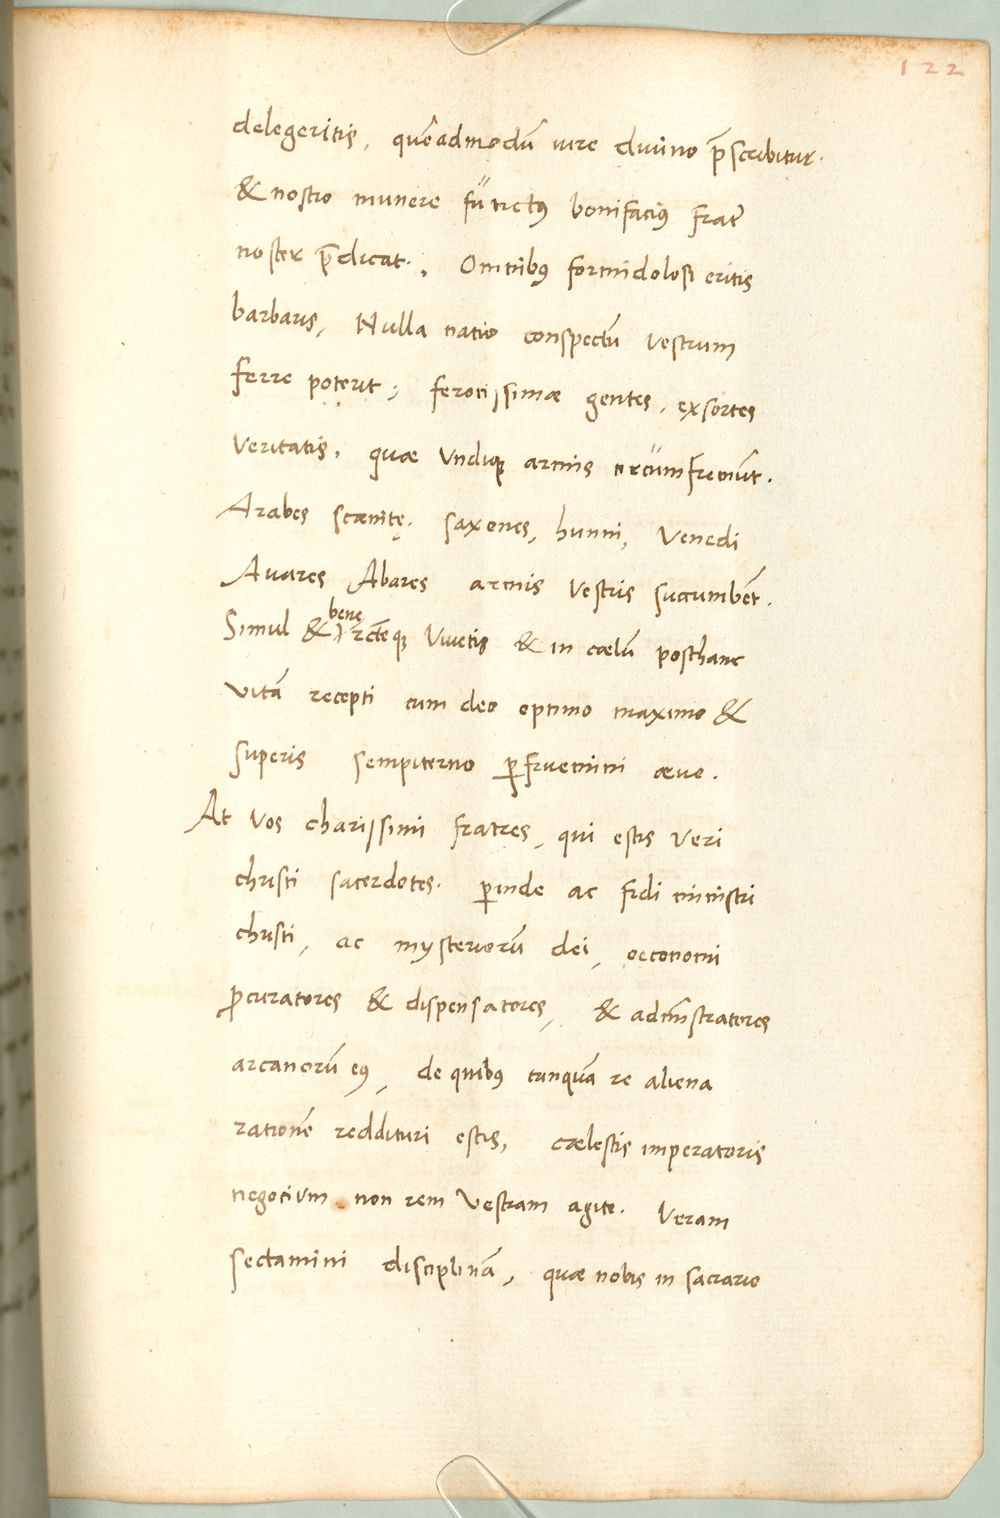 122
delegeritis, quēadmodū iure diuino p̄scribitur.
& nostro munere fūnctus bonifacius frat̄
noster p̄dicat. Omnibus formidolosi eritis
barbaris, Nulla natio conspectū vestrum
ferre poterit; ferocissimæ gentes, exsortes
veritatis, quæ vndique armis circumfremūt.
Arabes scænitę. saxones, hunni, Venedi
Auares Abares armis vestris succumbēt.
Simul & bene recteque viuetis & in cælū posthanc
vitā recepti cum deo optimo maximo &
superis sempiterno ꝑfruemini æuo.
At vos charissimi fratres, qui estis veri
christi sacerdotes. ꝑinde ac fidi ministri
christi, ac mysteriorū dei, oeconomi
ꝓcuratores & dispensatores, & admīstratores
arcanorū eius, de quibus tanquā re aliena
rationē reddituri estis, cælestis imperatoris
negocium non rem vestram agite. Veram
sectamini disciplinā, quæ nobis in sacrario